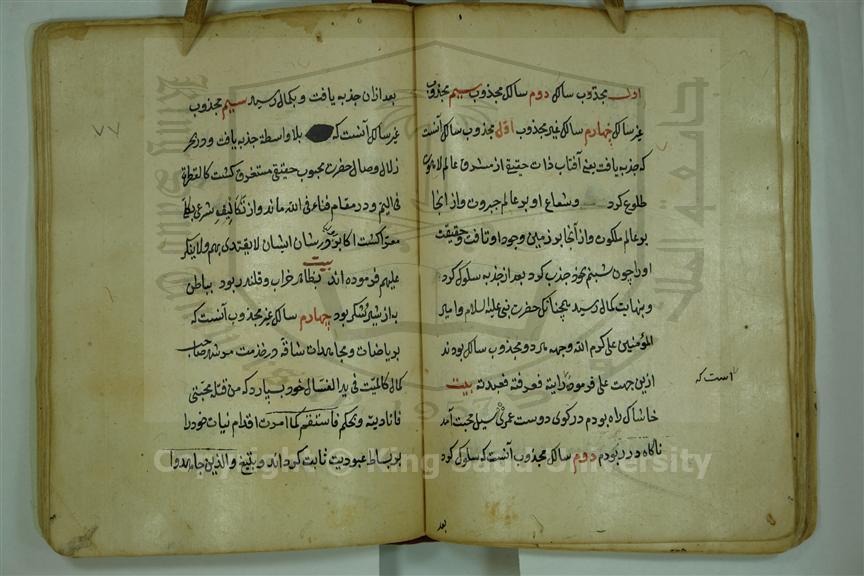 اول مجذوب سالک دوم سالک مجذوب سیم مجذوب
غیر سالک چهارم سالک غیر مجذوب اول مجذوب سالک آنست
که جذبه یافت یعنی آفتاب ذات حقیقة از مشرق عالم لاهوت
طلوع کرد و شعاع او بر عالم جبروت و از آنجا
بر عالم ملکوت و از آنجا بر زمین وجود او تافت و حقیقت
او را چون شبنم بخود جذب کرد بعد از جذبه سلوک کرد
و بنهایت کمال رسید همچنانکه حضرت نبی علیه السلام و امیر
المؤمنین علی کرم الله وجهه هر دو مجذوب سالک بودند
ازین جهت علی فرموده رایته فعرفته فعبدته بیت
است که
خاشاک راه بودم در کوی دوست عمری سیل محبت آمد
ناگاه در ربودم دوم سالک مجذوب آنست که سلوک کرد
بعد
بعد ازان جذبه یافت و بکمال رسید سیم مجذوب
غیر سالک آنست که بلا واسطه جذبه یافت و در بحر
زلال وصال حضرت محبوب حقیقی مستغرق کشت کالقطرة
فی الیم و در مقام فناء فی الله ماند و از تکالیف شرعی بکلی
معرا کشت اکابر در شان ایشان لا یقتدی بهم ولا ینکر
علیهم فرموده اند بیت بظاهر خراب و قلندر بود بباطن
به از شیر لشکر بود چهارم سالک غیر مجذوب آنست که
بر ریاضات و مجاهدات شاقه در خدمت مرشد صاحب
کمال کالمیت فی ید الغسال خود بسپارد که من قتله محبتی
فانا دیته و بحکم فاستقم کما امرت اقدام نیات خود را
بر بساط عبودیت ثابت کرداند و بتیغ والذین جاهدوا
٧٧
Copyright © King Saud University
جامعة الملك سعود